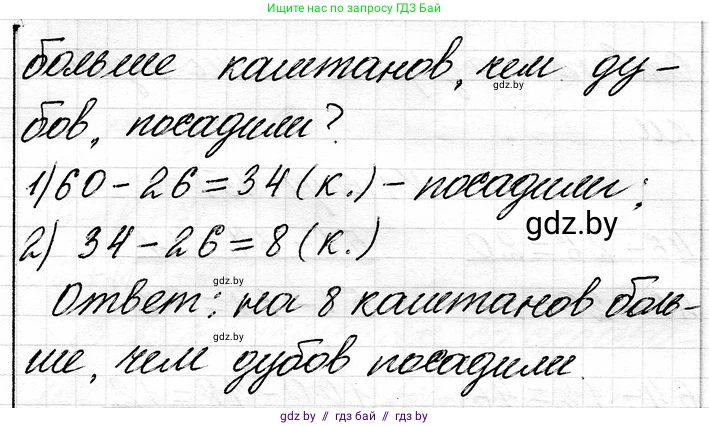 Ищите нас по запросу ГДЗ Бай
больше каштанов, чем ду-
gdz.by
бов, посадили?
1) 60 - 26 = 34 (к.) - посадили;
gdz.by
2) 34 - 26 = 8 (к.)
gdz.by
Ответ: на 8 каштанов боль-
gdz.by
ше, чем дубов посадили.
gdz.by // гдз бай // гдз.by